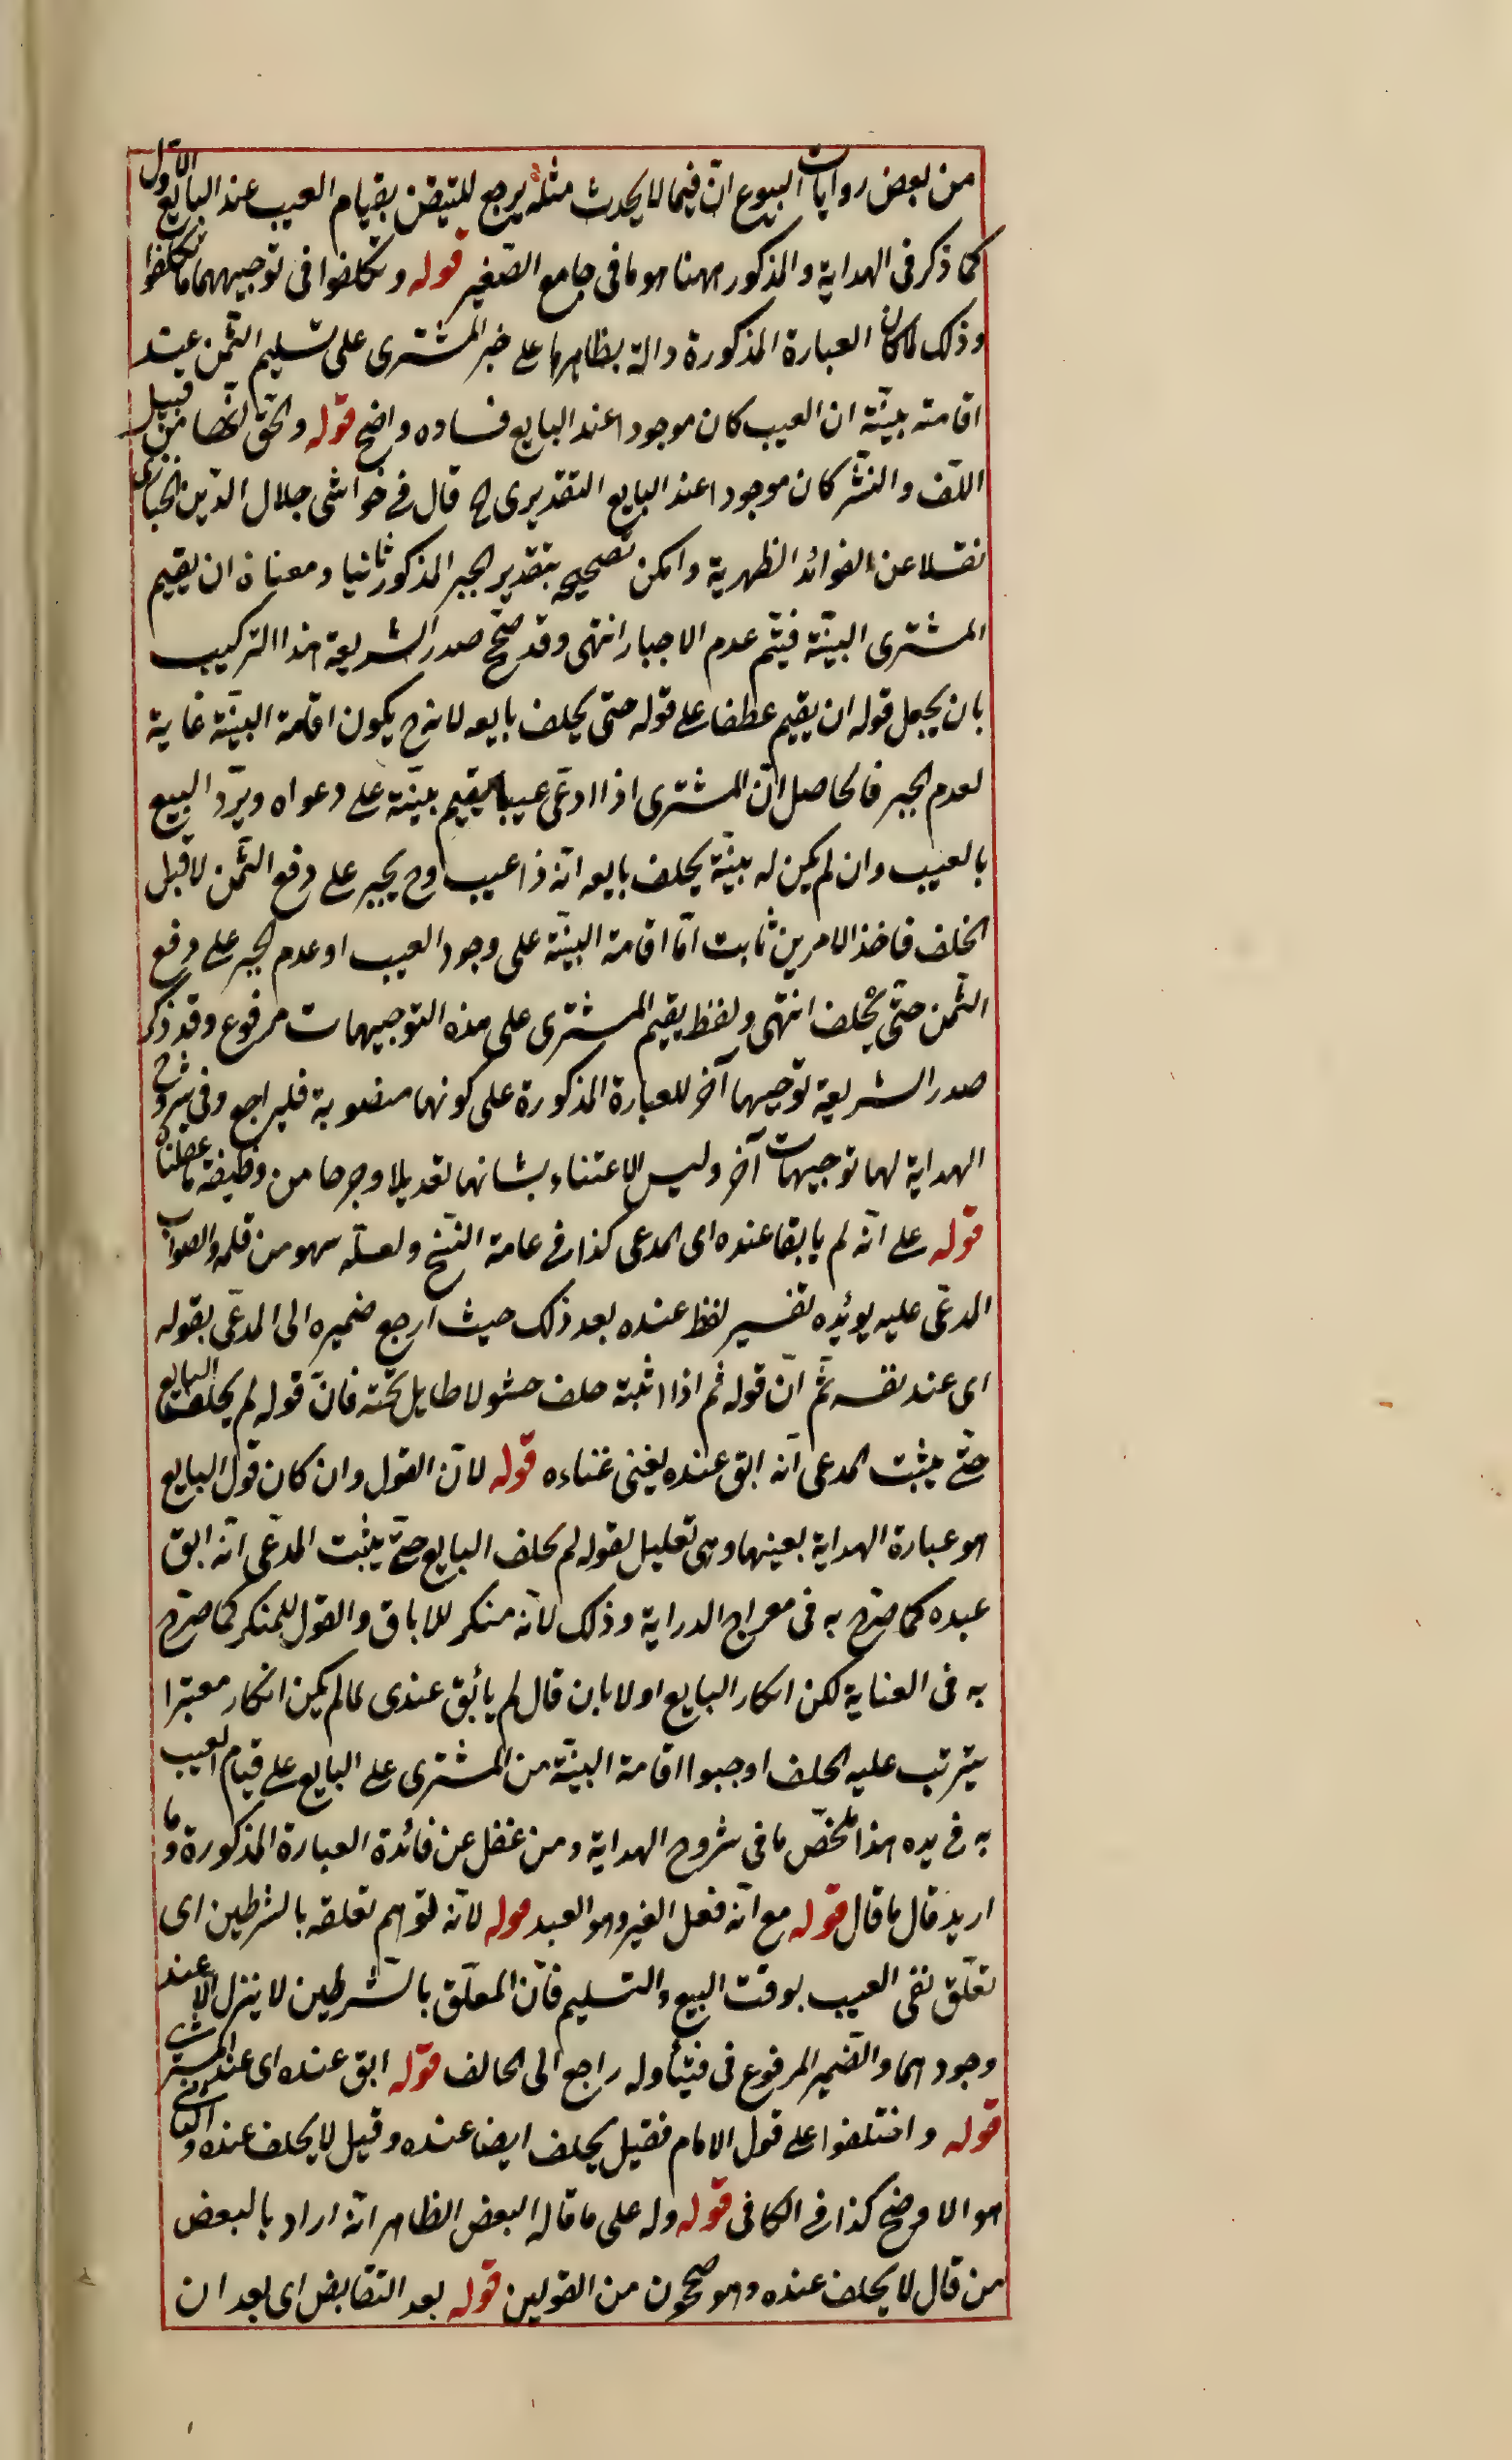 من بعض روايات البيوع انّ فيما لا يحدث مثله يرجع للتيقن بقيام العيب عند البايع الاول
كما ذكر فى الهداية والمذكور ههنا هو ما فى جامع الصّغير قوله وتكلفوا فى توجيهها ما تكلفوا
وذلك لما كان العبارة المذكورة دالة بظاهرها على خبر المشترى على تسليم الثمن عند
اقامته بيّنة ان العيب كان موجودا عند البايع فساده واضح قوله والحق انها من قبيل
اللّف والنّشر كان موجودا عند البايع التقديرى الح قال فى حواشى جلال الدّين الخبازى
نقلا عن الفوائد الظهرية وامكن تصحيحه بتقدير الجبر المذكور ثانيا ومعناه ان يقيم
المشترى البينّة فيتم عدم الاجبار انتهى وقد صحّح صدر الشريعة هذا التركيب
بان يجعل قوله ان يقيم عطفا على قوله حتى يحلف بايعه لانه ح يكون اقامة البينّة غاية
لعدم الجبر فالحاصل انّ المشترى اذا ادعّى عيبا يقيم بيّنة على دعواه ويردّ البيع
بالعيب وان لم يكن له بينّة يحلف بايعه انّه ذا عيب وح يجبر على دفع الثّمن لا قبل
الحلف فاخذ الامرين ثابت امّا اقامة البينّة على وجود العيب او عدم الجبر على دفع
الثّمن حتّى يحلف انتهى ولفظ يقيم المشترى على هذه التوجيهات مرفوع وقد ذكر
صدر الشريعة توجيها آخر للعبارة المذكورة على كونها منصوبة فليراجع وفى شروح
الهداية لها توجيهات آخر وليس الاعتناء بشانها تعديلا وجرحا من وظيفة ما
قوله على انّه لم يابقا عنده اى المدعى كذا فى عامة النّسخ ولعلّه سهو من قلمه والصواب
المدعّى عليه يوئده تفسير لفظ عنده بعد ذلك حيث ارجع ضميره الى المدعّى بقوله
اى عند نفسه ثمّ انّ قوله ثم اذا اثبته حلف حشو لا طايل تحته فانّ قوله لم يحلف البايع
حتّى يثبت المدعى انّه ابق عنده يغنى غناءه قوله لانّ القول وان كان قول البايع
هو عبارة الهداية بعينها وهى تعليل لقوله لم يحلف البايع حتّى يثبت المدعّى انّه ابق
عبده كما صرّح به فى معراج الدراية وذلك لانّه منكر للاباق والقول للمنكر كما صرّح
به فى العناية لكن انكار البايع اولا بان قال لم يأبق عندى لما لم يكن انكار معتبرا
يترتب عليه الحلف اوجبوا اقامة البينّة من المشترى على البايع على قيام العيب
به فى يده هذا ملخّص ما فى شروح الهداية ومن غفل عن فائدة العبارة المذكورة وما
اريد قال ما قال قوله مع انّه فعل الغير وهو العبد قوله لانّه توهم تعلقه بالشرطين اى
تعلّق نفى العيب بوقت البيع والتسليم فانّ المعلّق بالشّرطين لا ينزل الا عند
وجودهما والضّمير المرفوع فى فيتأوله راجع الى الحالف قوله ابق عنده اى عند المشترى
قوله واختلفوا على قول الامام فقيل يحلف ايضا عنده وقيل لا يحلف عنده والثانى
هو الاوضح كذا فى الكافى قوله وله على ما قاله البعض الظاهر انّه اراد بالبعض
من قال لا يحلف عنده وهو من القولين قوله بعد التقابض اى بعد ان